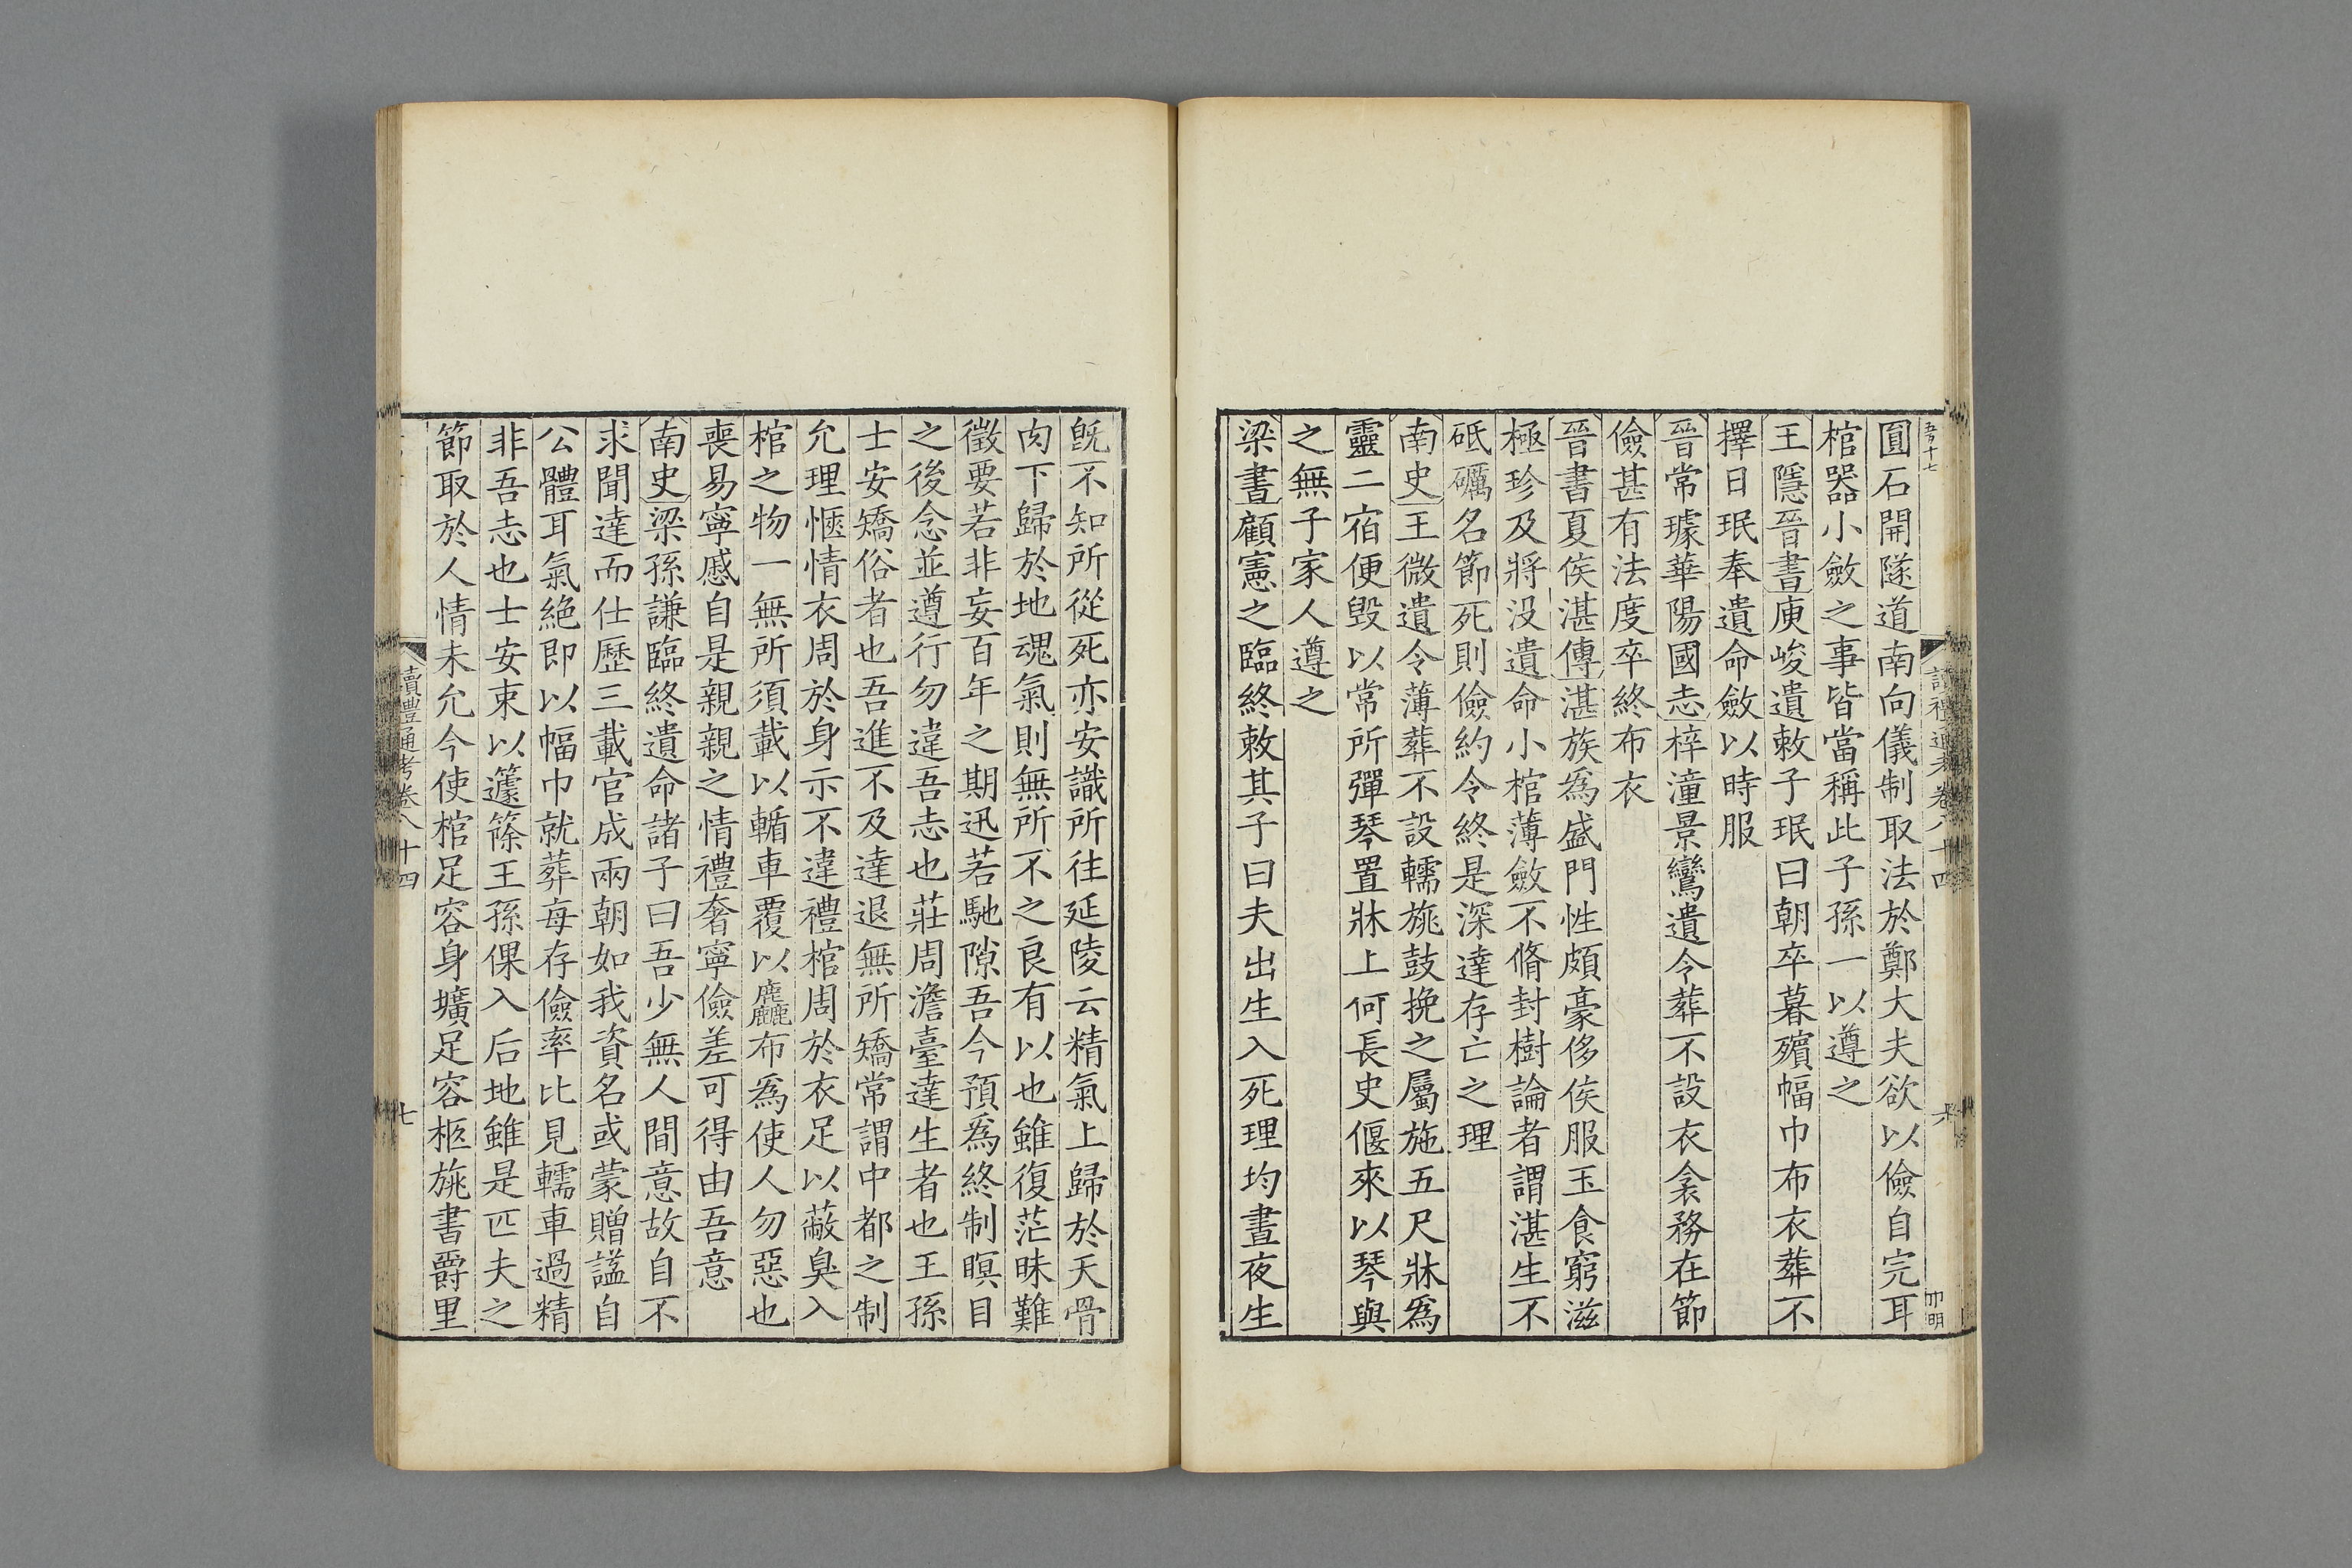 圓石開隧道南向儀制取法於鄭大夫欲以儉自完耳
棺器小斂之事皆當稱此子孫一以遵之
王隱晉書庾峻遺敕子珉曰朝卒暮殯幅巾布衣葬不
擇日珉奉遺命斂以時服
晉常璩華陽國志梓潼景鸞遺令葬不設衣衾務在節
儉甚有法度卒終布衣
晉書夏侯湛傳湛族爲盛門性頗豪侈侯服玉食窮滋
極珍及將没遺命小棺薄斂不脩封樹論者謂湛生不
砥礪名節死則儉約令終是深達存亡之理
南史王微遺令薄葬不設轜旐鼓挽之屬施五尺牀爲
靈二宿便毀以常所彈琴置牀上何長史偃來以琴與
之無子家人遵之
梁書顧憲之臨終敕其子曰夫出生入死理均晝夜生
既不知所從死亦安識所往延陵云精氣上歸於天骨
肉下歸於地魂氣則無所不之良有以也雖復茫昧難
徵要若非妄百年之期迅若馳隙吾今預爲終制瞑目
之後念並遵行勿違吾志也莊周澹臺達生者也王孫
士安矯俗者也吾進不及達退無所矯常謂中都之制
允理愜情衣周於身示不違禮棺周於衣足以蔽臭入
棺之物一無所須載以輴車覆以麤布爲使人勿惡也
喪易寧慼自是親親之情禮奢寧儉差可得由吾意
南史梁孫謙臨終遺命諸子曰吾少無人間意故自不
求聞達而仕歷三載官成兩朝如我資名或蒙贈謚自
公體耳氣絕即以幅巾就葬每存儉率比見轜車過精
非吾志也士安束以籧篨王孫倮入后地雖是匹夫之
節取於人情未允今使棺足容身壙足容柩旐書爵里
讀禮通考卷八十四
七